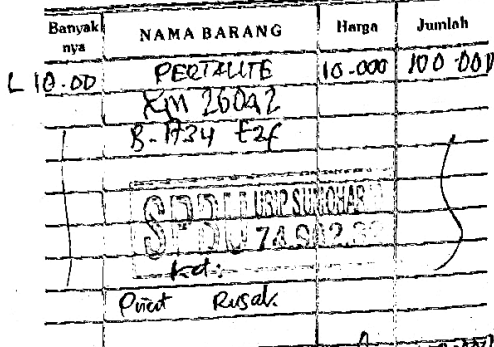 Banyak nya NAMA BARANG Harga Jumlah
L 10.00 PERTALITE 10.000 100 000
KM 26042
B-1734 EZF
SPBU URIP SUMOHAR
74.902.
Ket:
Print Rusak